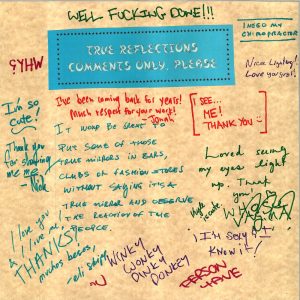 WELL FUCKING DONE!!!
I NEED MY
CHIROPRACTOR
WHY?
TRUE REFLECTIONS
COMMENTS ONLY, PLEASE
Love yourself!
I'm so
cute!
I've been coming back for years!
Much respect for your work!
- Jonah
I SEE...
ME!
THANK YOU
Thank you
for showing
me me
- Nick
IT WOULD BE GREAT TO
PUT SOME OF THOSE
TRUE MIRRORS IN BARS,
CLUBS OR FASHION STORES
WITHOUT SAYING IT'S A
TRUE MIRROR AND OBSERVE
THE REACTION OF THE
PEOPLE.
Loved seeing
my eyes light
up. Thank
you
I love you
& I love me,
THANKS!
muchos besos,
WINKY
WONKY
DINKY
DONKEY
I'M SEXY & I
KNOW it!
PERSON
4AVE